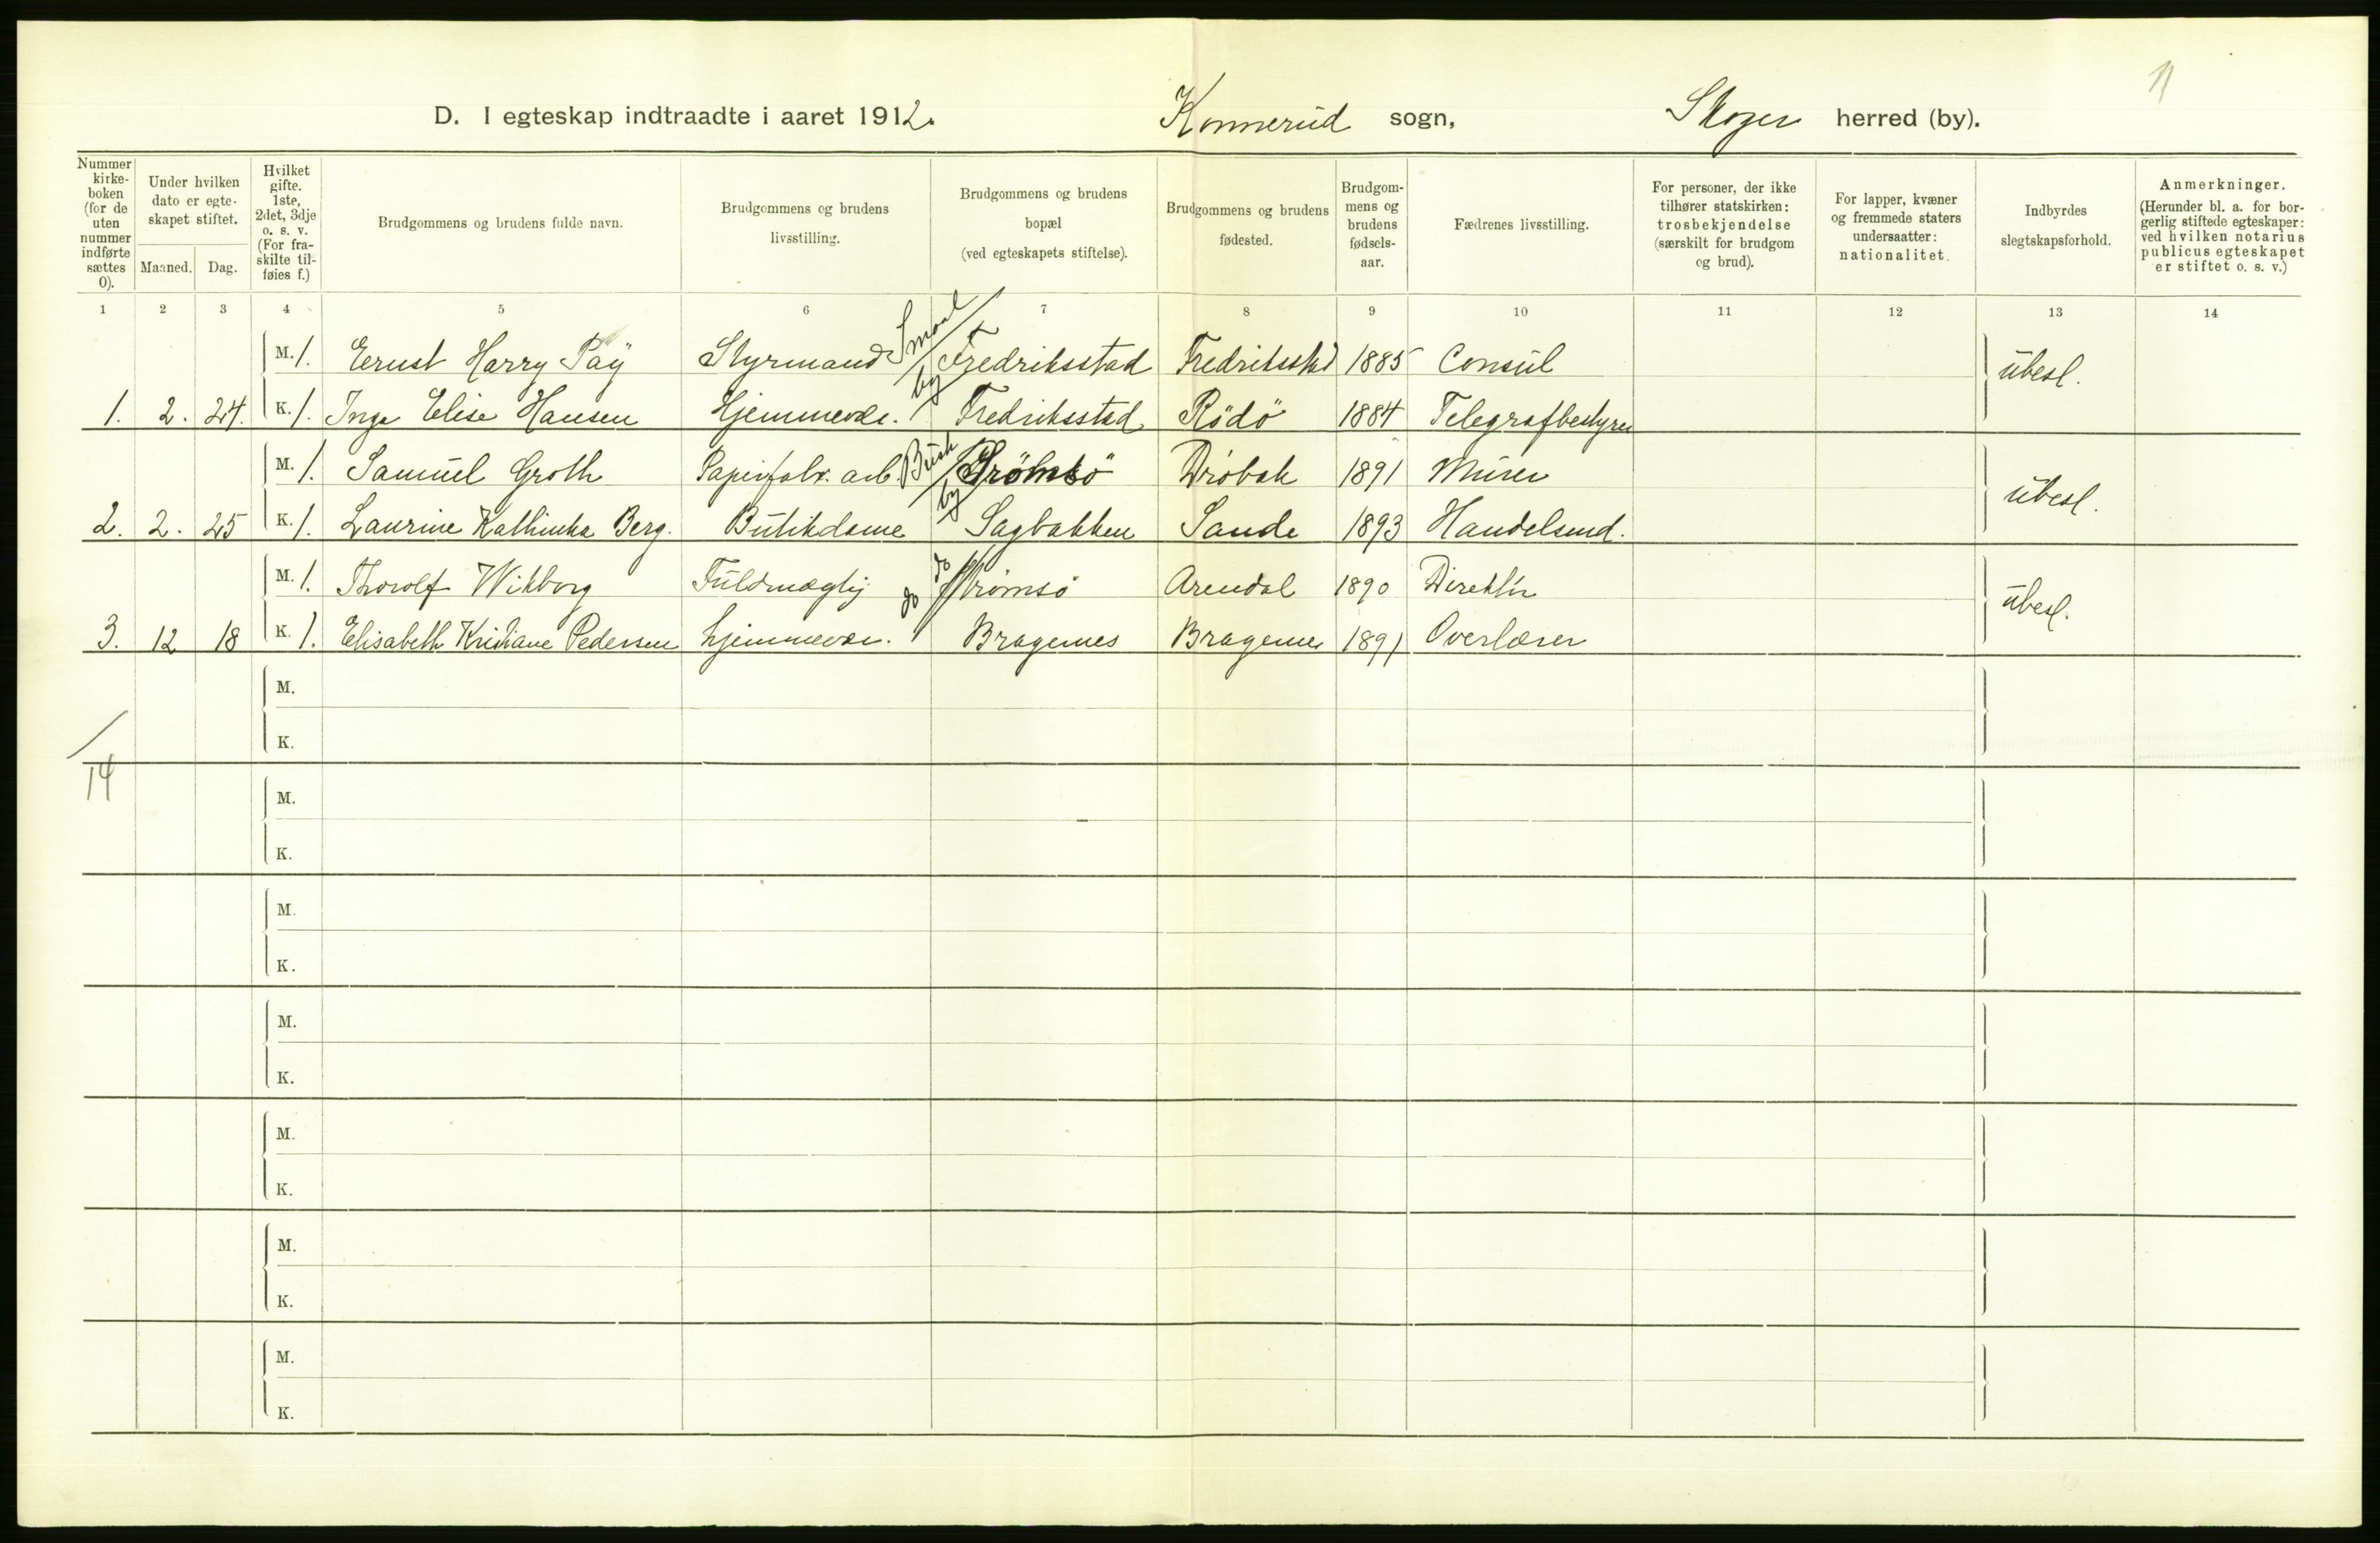 11
D. I egteskap indtraadte i aaret 1912. Konnerud sogn, Skoger herred (by).
Nummer kirkeboken (for de uten nummer indførte sættes 0).
Under hvilken dato er egteskapet stiftet.
Maaned. Dag.
Hvilket gifte. 1ste, 2det, 3dje o. s. v. (For fraskilte tilføies f.)
Brudgommens og brudens fulde navn.
Brudgommens og brudens livsstilling.
Brudgommens og brudens bopæl (ved egteskapets stiftelse).
Brudgommens og brudens fødested.
Brudgommens og brudens fødselsaar.
Fædrenes livsstilling.
For personer, der ikke tilhører statskirken: trosbekjendelse (særskilt for brudgom og brud).
For lapper, kvæner og fremmede staters undersaatter: nationalitet.
Indbyrdes slegtskapsforhold.
Anmerkninger. (Herunder bl. a. for borgerlig stiftede egteskaper: ved hvilken notarius publicus egteskapet er stiftet o. s. v.)
1 2 3 4 5 6 7 8 9 10 11 12 13 14
M. 1. Ernst Harry Paÿ Styrmand Smaal Fredriksstad Fredriksstad 1885 Consul ubesl.
1. 2. 24. K. 1. Inga Elise Hansen Hjemmevær. by Fredriksstad Rödö 1884 Telegrafbestyrer
M. 1. Samuel Groth Papirfabr. arb. Busk Strömsö Dröbak 1891 Murer ubesl.
2. 2. 25 K. 1. Laurine Kathinka Berg. Butikdame by Sagbakken Sande 1893 Handelsmd.
M. 1. Thorolf Wikborg Fuldmægtig do Strømsö Arendal 1890 Direktör ubesl.
3. 12 18 K. 1. Elisabeth Kristiane Pedersen hjemmevær. do Bragernes Bragernes 1891 Overlærer
M.
K.
14
M.
K.
M.
K.
M.
K.
M.
K.
M.
K.
M.
K.